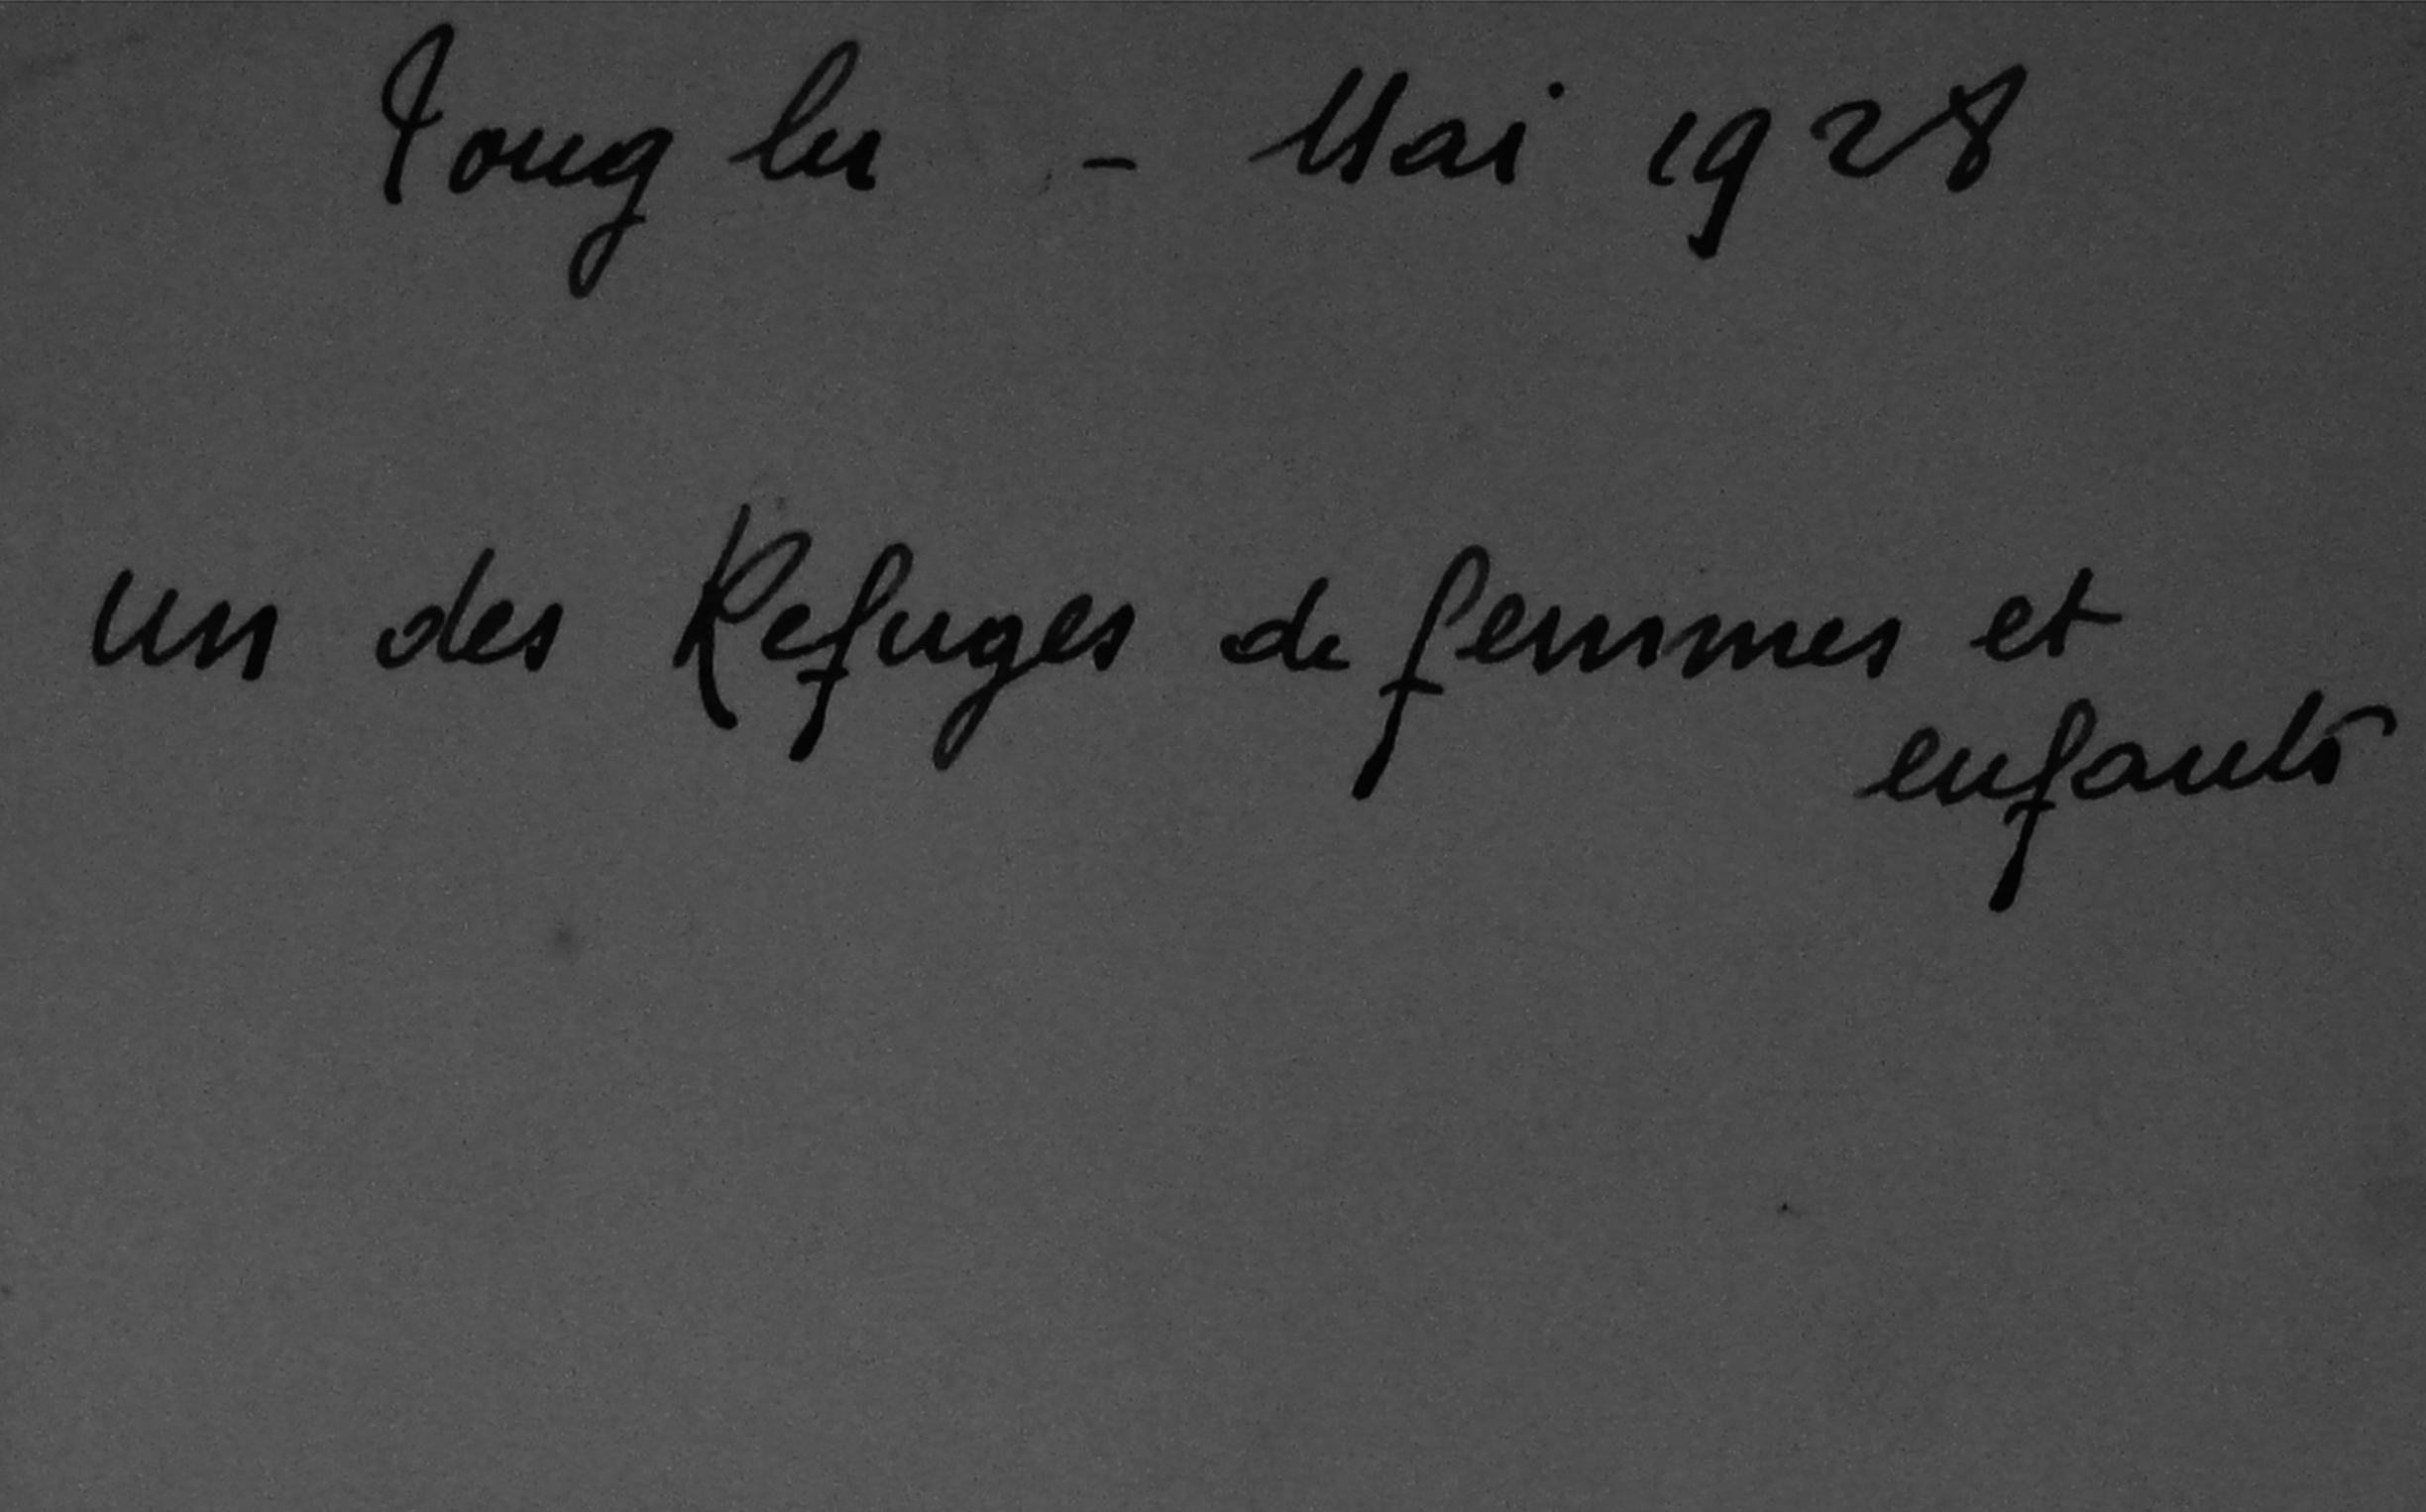 Toug lu - Mai 1928
un des Refuges de femmes et
enfants